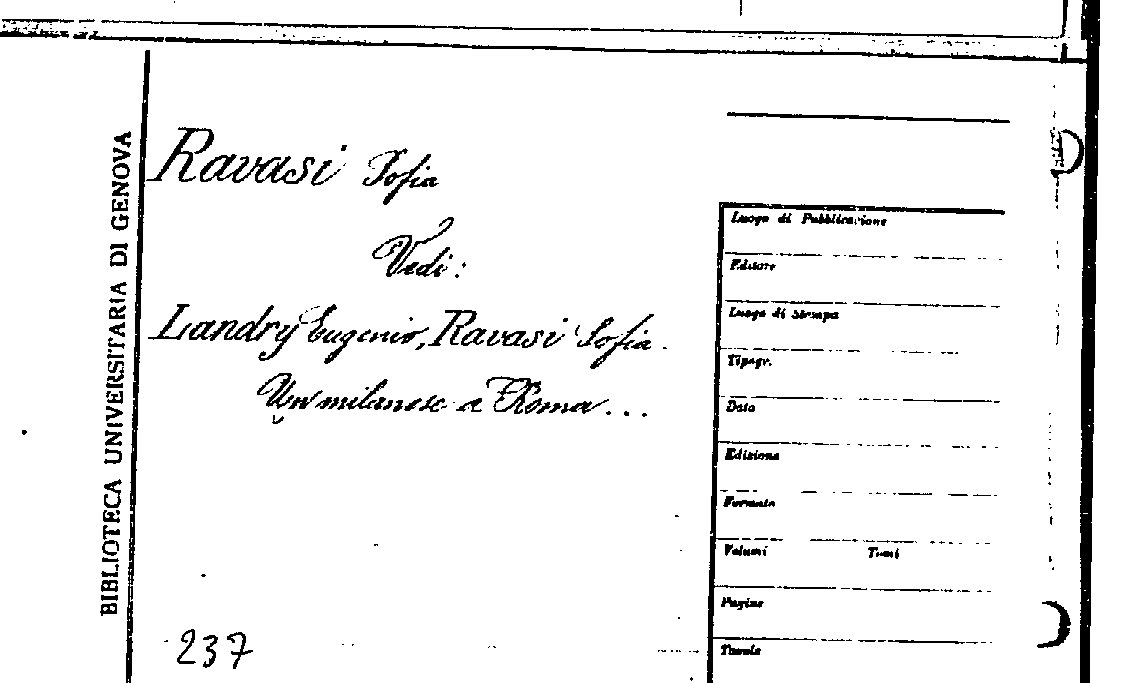 BIBLIOTECA UNIVERSITARIA DI GENOVA
Ravasi Sofia
Vedi:
Landry Eugenio, Ravasi Sofia.
Un milanese a Roma...
237
Luogo di Pubblicazione
Editore
Luogo di Stampa
Tipogr.
Data
Edizione
Formato
Volumi Tomi
Pagine
Tavole